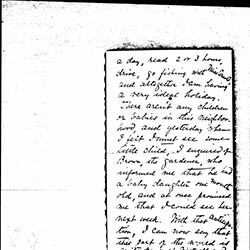 a day, read 2 or 3 hours,
drive, go fishing with Miss
and altogether I am having
a very ideal holiday.
There aren't any children
or babies in this neighbor-
hood, and yesterday when
I felt I must see some
little child, I enquired of
Brown, its gardener, who
informed me that he had
a baby daughter one month
old, and at once promised
me that I could see her
next week. With that anticipa-
tion, I can now say that
this part of the world is